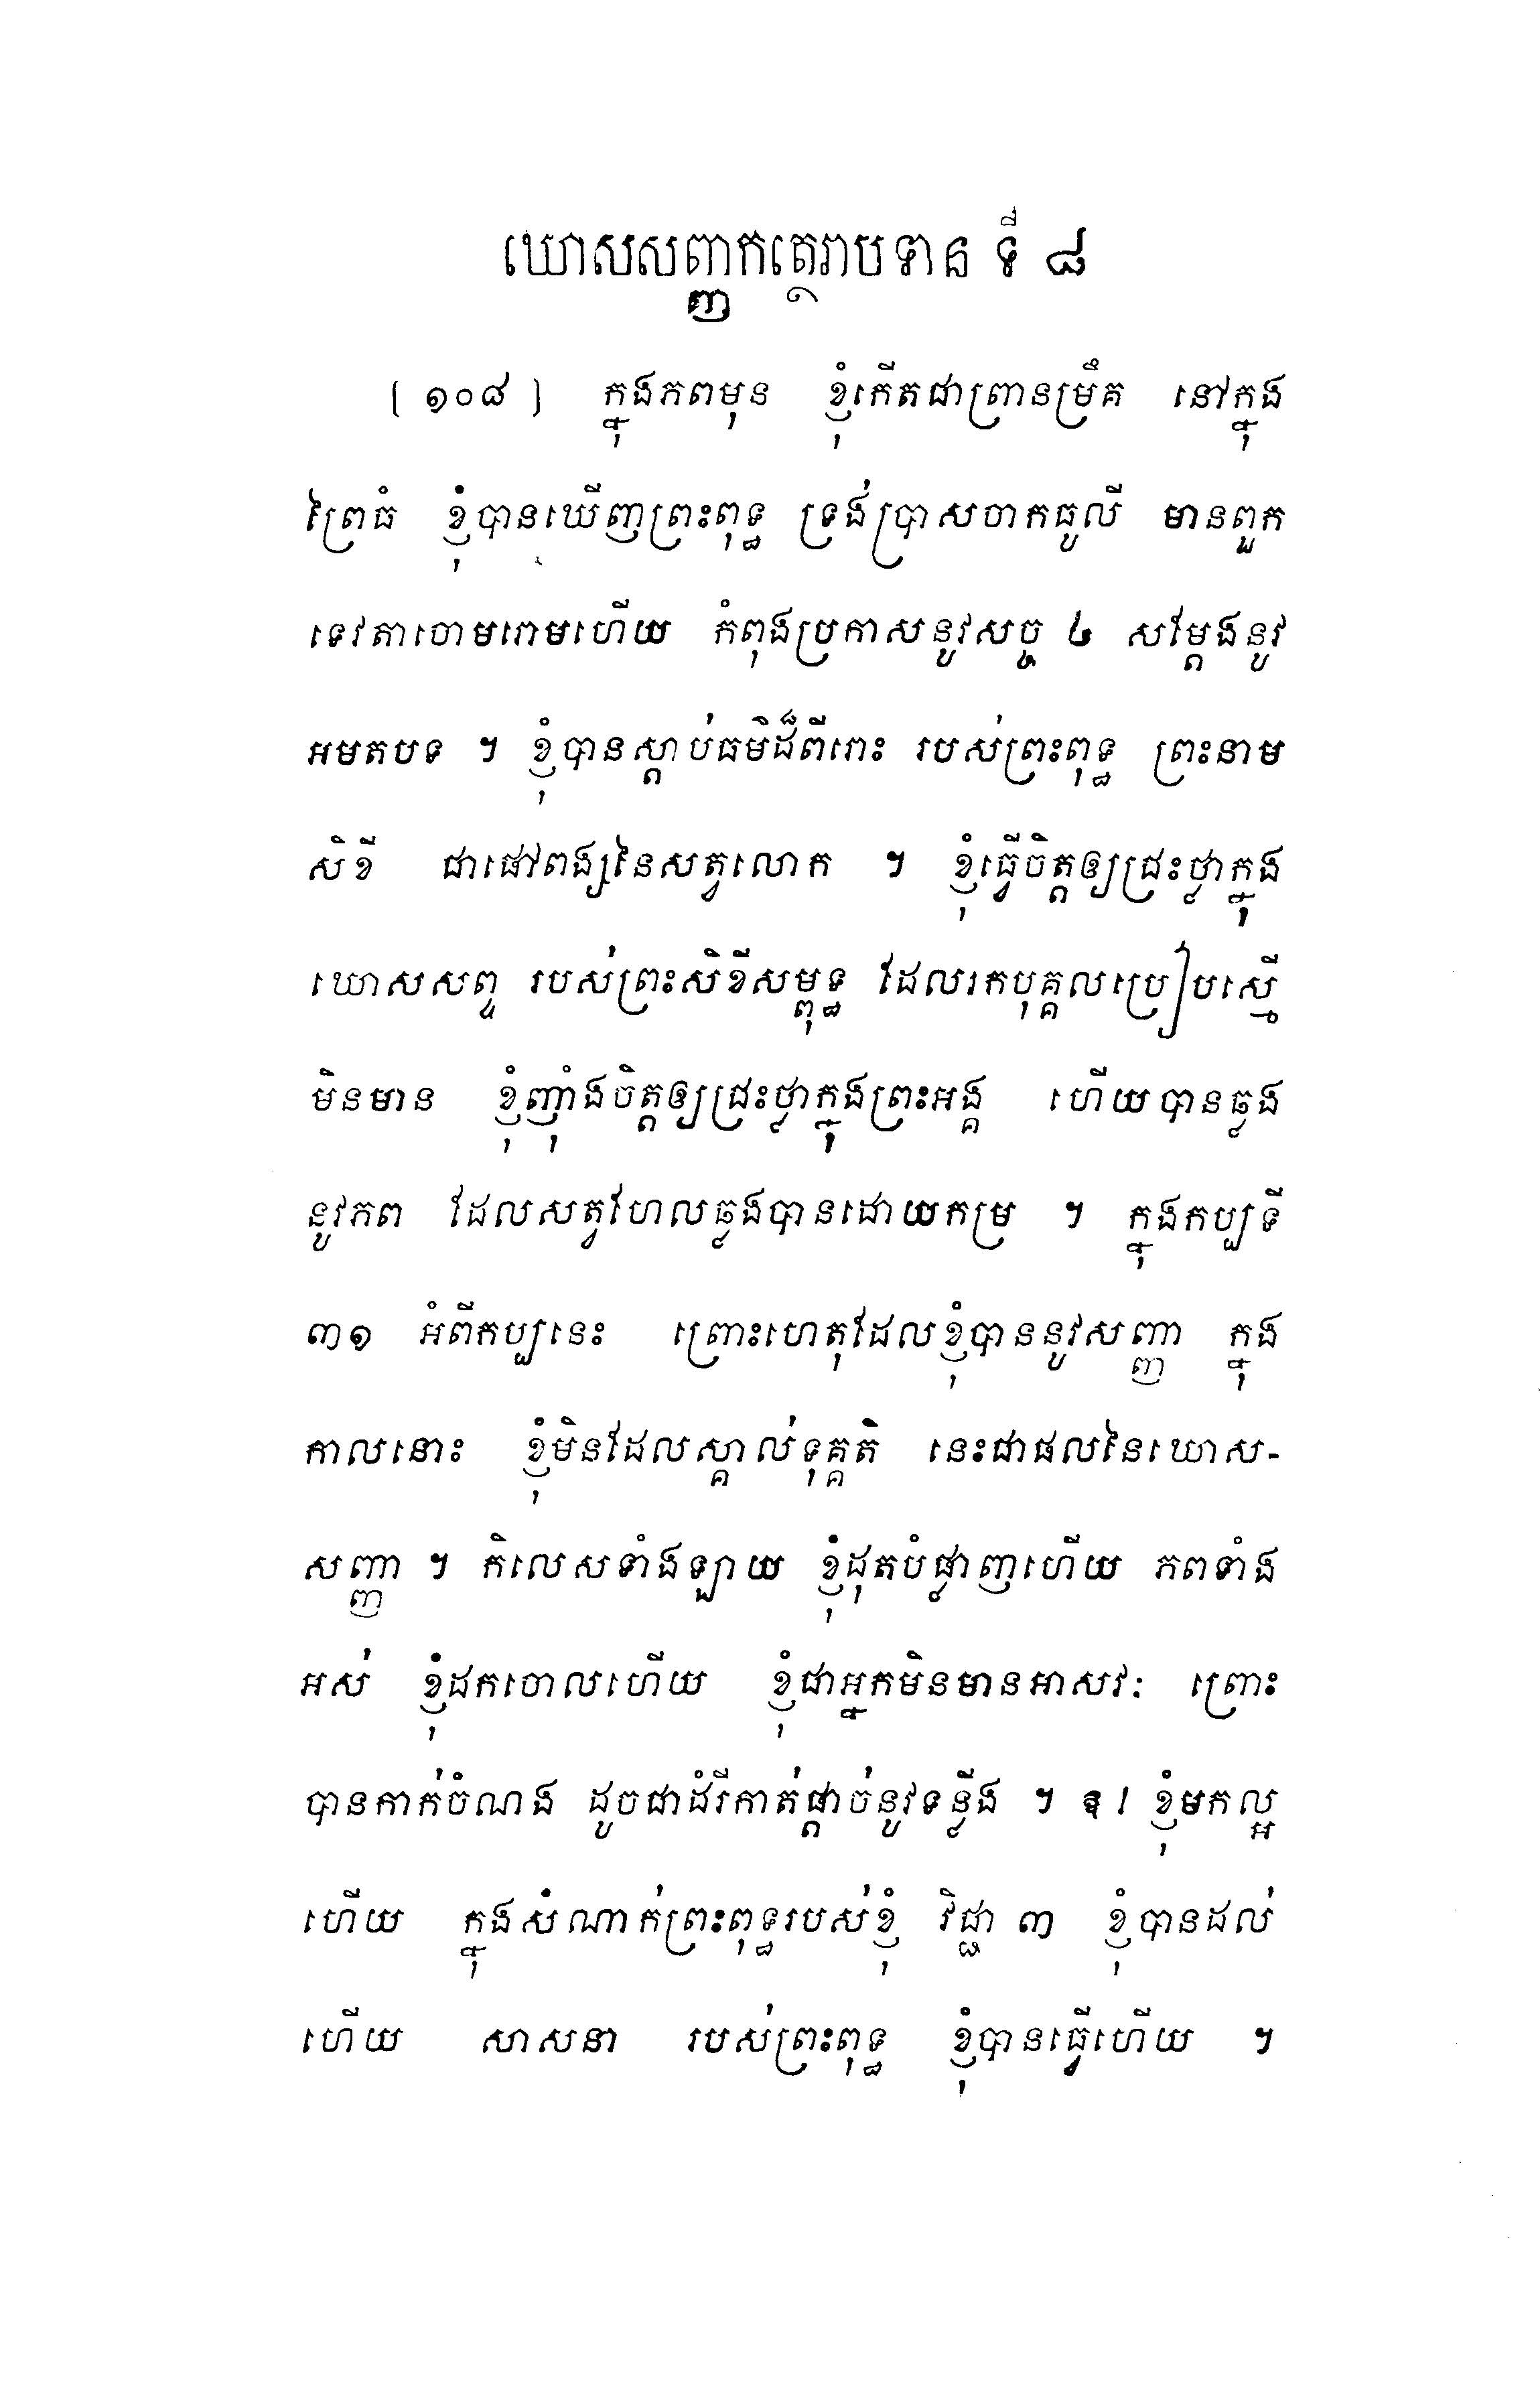 ឃោសសញ្ញកត្ថេរាបទាន ទី ៨
[ ១០៨ ] ក្នុងភពមុន ខ្ញុំកើតជាព្រានម្រឹគ នៅក្នុង
ព្រៃធំ ខ្ញុំបានឃើញព្រះពុទ្ធ ទ្រង់ប្រាសចាកធូលី មានពួក
ទេវតាចោមរោមហើយ កំពុងប្រកាសនូវសច្ច ៤ សម្ដែងនូវ
អមតបទ ។ ខ្ញុំបានស្ដាប់ធម៌ដ៏ពីរោះ របស់ព្រះពុទ្ធ ព្រះនាម
សិខី ជាផៅពង្សនៃសត្វលោក ។ ខ្ញុំធ្វើចិត្តឲ្យជ្រះថ្លាក្នុង
ឃោសសព្ទ របស់ព្រះសិខីសម្ពុទ្ធ ដែលរកបុគ្គលប្រៀបស្មើ
មិនមាន ខ្ញុំញុំាងចិត្តឲ្យជ្រះថ្លាក្នុងព្រះអង្គ ហើយបានឆ្លង
នូវភព ដែលសត្វហែលឆ្លងបានដោយកម្រ ។ ក្នុងកប្បទី
៣១ អំពីកប្បនេះ ព្រោះហេតុដែលខ្ញុំបាននូវសញ្ញា ក្នុង
កាលនោះ ខ្ញុំមិនដែលស្គាល់ទុគ្គតិ នេះជាផលនៃឃោស-
សញ្ញា ។ កិលេសទាំងឡាយ ខ្ញុំដុតបំផ្លាញហើយ ភពទាំង
អស់ ខ្ញុំដកចោលហើយ ខ្ញុំជាអ្នកមិនមានអាសវៈ ព្រោះ
បានកាក់ចំណង ដូចជាដំរីកាត់ផ្ដាច់នូវទន្លីង ។ ឱ! ខ្ញុំមកល្អ
ហើយ ក្នុងសំណាក់ព្រះពុទ្ធរបស់ខ្ញុំ វិជ្ជា ៣ ខ្ញុំបានដល់
ហើយ សាសនា របស់ព្រះពុទ្ធ ខ្ញុំបានធ្វើហើយ ។